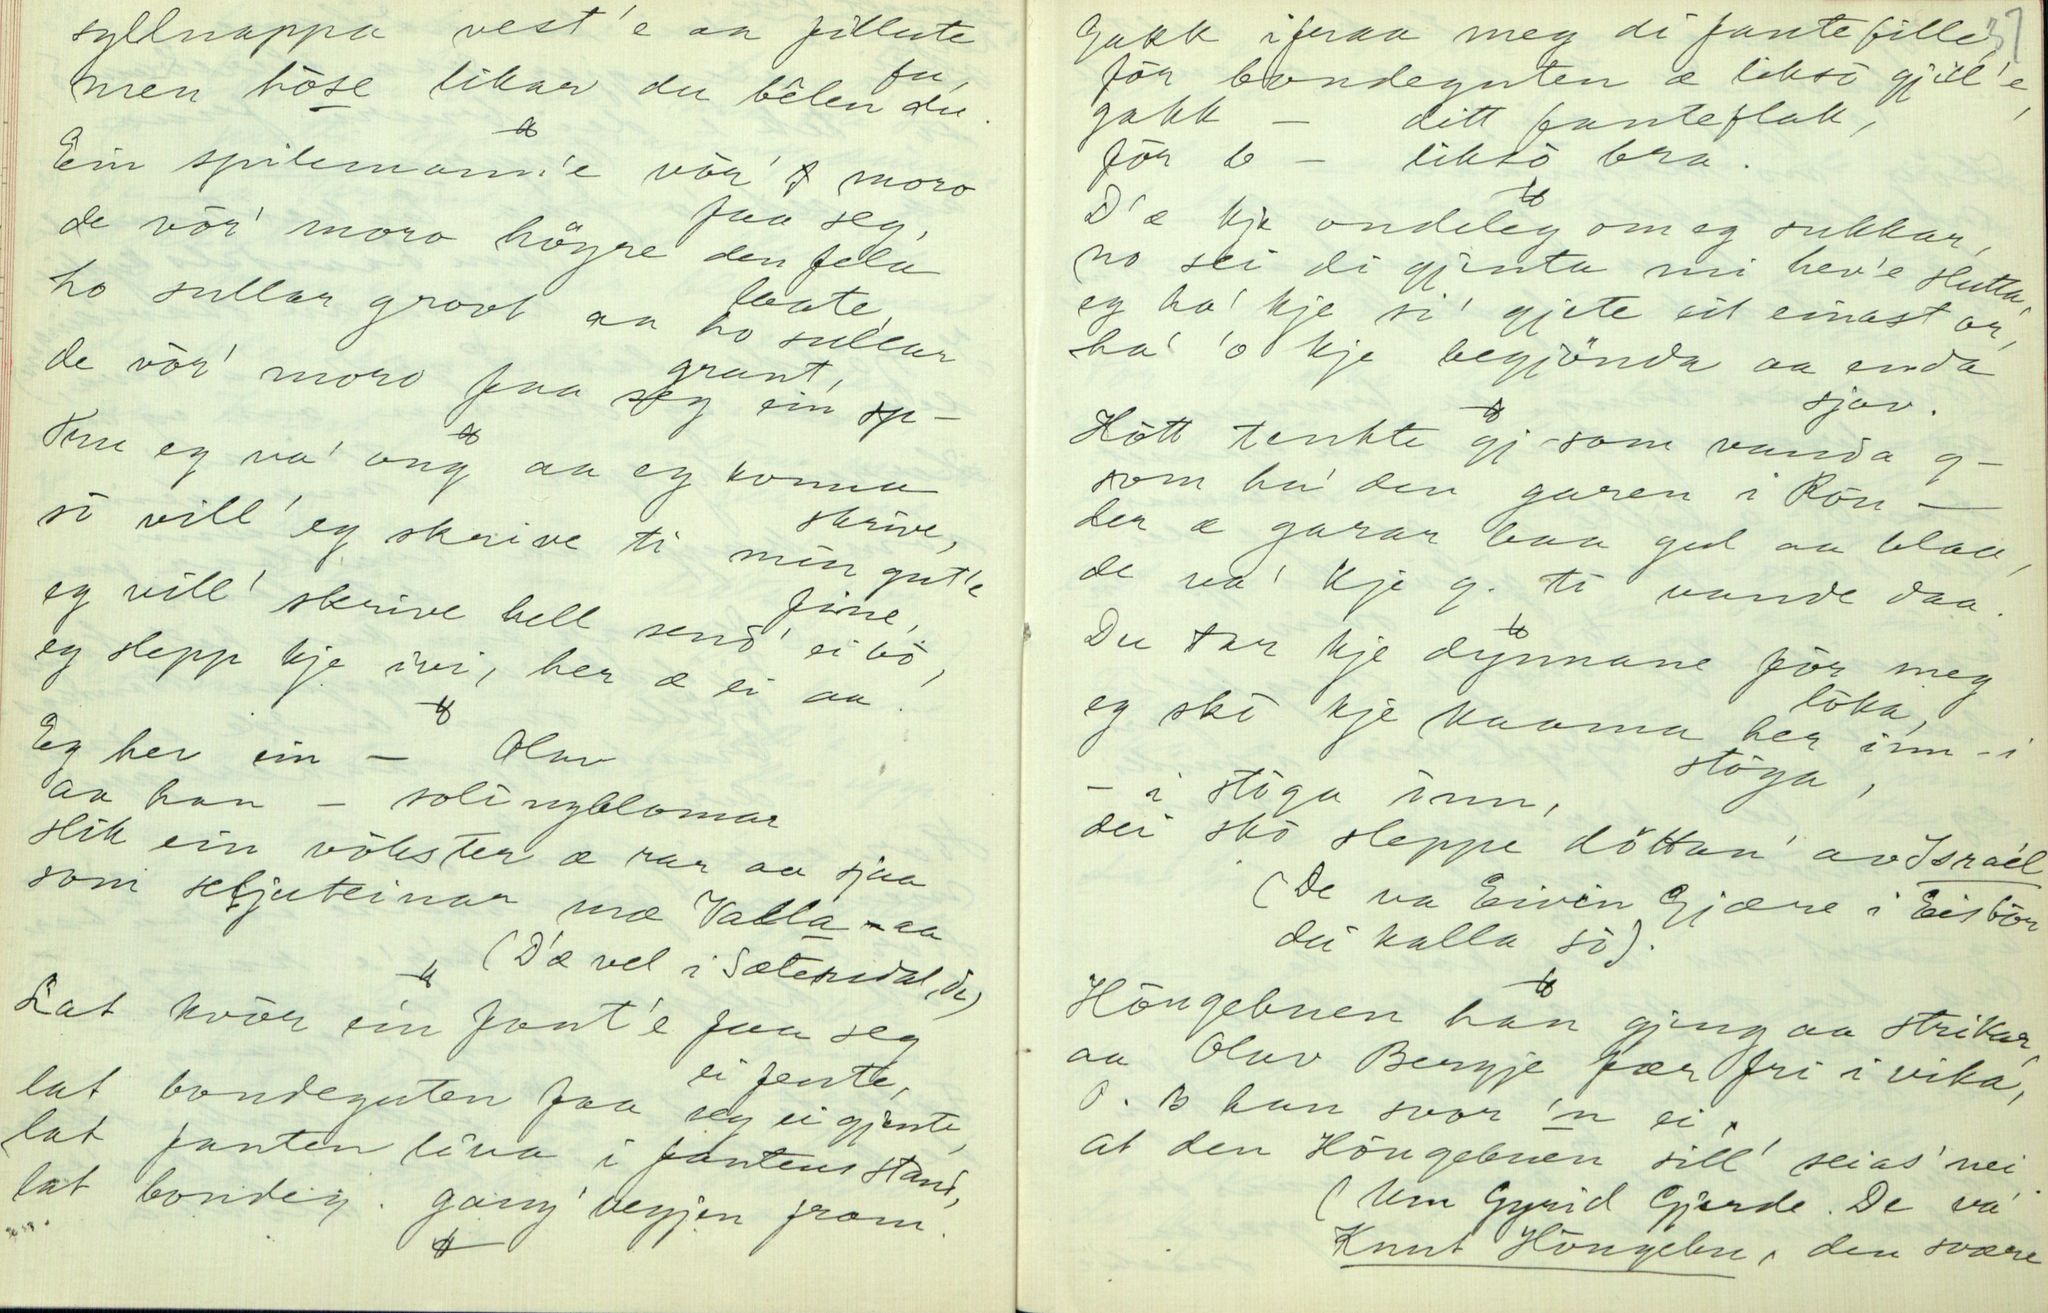 syllnappa vest'e aa fillute
fu,
men höse likar du bêlen du.
Ein spilemann'e vör' moro
faa seg,
de vör' moro högre den fela
laate,
ho sullar grovt aa ho sullar
grant,
de vör' moro faa seg ein sp-
Um eg va' ong aa eg konna
skrive,
sö vill' eg skrive ti min gut'e
fine,
eg vill' skrive hell send' ei bö,
eg slepp kje ivi, her æ ei aa!
Eg her ein - Olav
aa han - solingblomar
slik ein vökster æ rar aa sjaa
som seljuteinar mæ Valla-aa
(D'æ vel i Sætesdal, du)
Lat kvör ein fant'e faa seg
ei fente,
lat bondeguten faa seg ei gjente,
lat fanten liva i fantens stand,
lat bondeg. gang' vegjen fram.
37
Gakk ifraa meg di fantefille,
för bondeguten æ liksö gjill'e,
gakk - ditt fanteflak,
för b - liksö bra.
D'æ kje ondeleg om eg sukkar,
no sei di gjenta mi hev'e slutta,
eg ha' kje si' gjete eit einast or,
ha' 'o kje begjönda aa enda
sjav.
Hött tenkte gj- som vanda g-
som ha' den garen i Rön -
der æ garar baa gul aa blaa,
de va' kje g. ti vande daa.
Du tar kje dynnane för meg
löka,
eg skö kje kaama her inn - i
stöga,
- i stöga inn,
dei skö sleppe döttan' av Israél
(De va Eivin Gjære i Eisbör
dei kalla sö).
Höngebuen han gjeng aa strikar,
aa Olav Bergje fær fri i vika,
O. B han svor 'n ei,
at den Höngebuen sill' seias' nei.
(Um Gyrid Gjerde. De va
Knut Höngebu, den svære